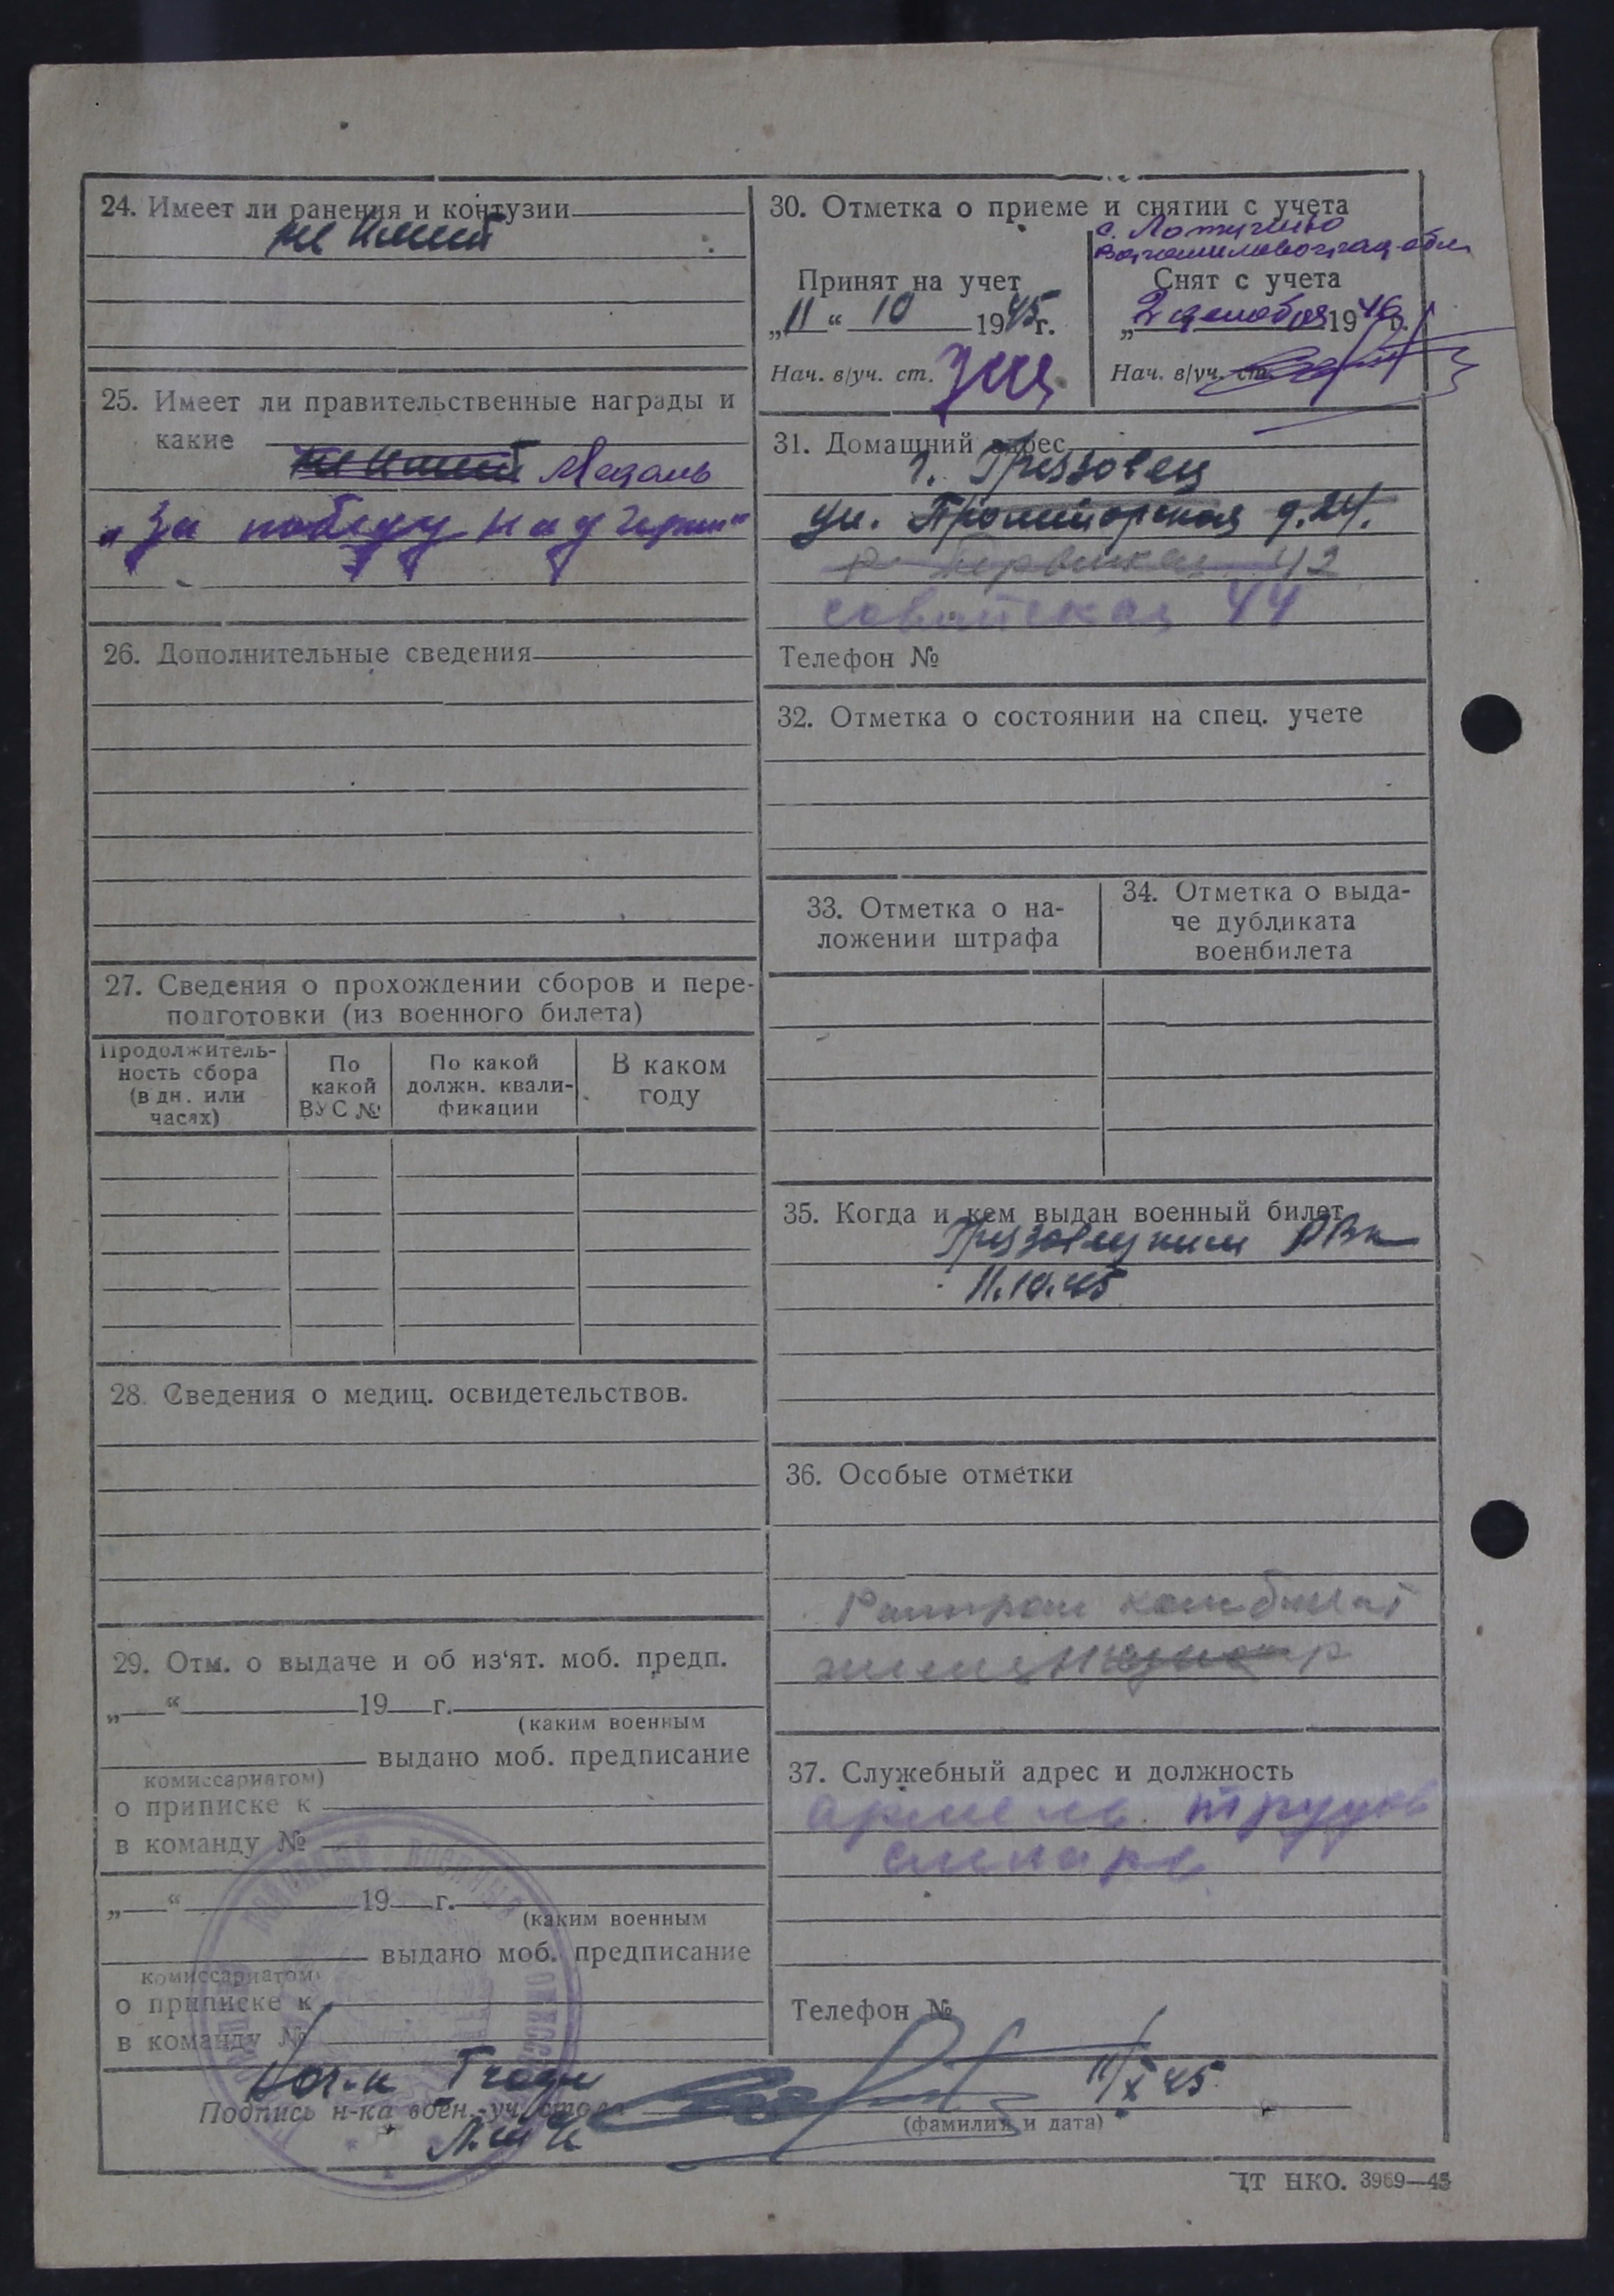 24. Имеет ли ранения и контузии
не имеет
25. Имеет ли правительственные награды и
какие
не имеет Медаль
„За победу над Герм“
26. Дополнительные сведения
27. Сведения о прохождении сборов и пере-
подготовки (из военного билета)
Продолжитель-
ность сбора
(в дн. или
часах)
По
какой
ВУС №
По какой
должн. квали-
фикации
В каком
году
28. Сведения о медиц. освидетельствов.
29. Отм. о выдаче и об из‘ят. моб. предп.
„ “ 19 г.
(каким военным
выдано моб. предписание
комиссариатом)
о приписке к
в команду №
„ “ 19 г.
(каким военным
выдано моб. предписание
комиссариатом)
о приписке к
в команду №
30. Отметка о приеме и снятии с учета
с. Лотугино
Ворошиловоград. обл.
Принят на учет
„11“ 10 1945г.
Нач. в/уч. ст.
Снят с учета
„2 декабря 1946г.
Нач. в/уч. ст.
31. Домашний адрес
г. Грязовец
ул. Пролетарская д. 24.
42
советская 44
Телефон №
32. Отметка о состоянии на спец. учете
33. Отметка о на-
ложении штрафа
34. Отметка о выда-
че дубликата
военбилета
35. Когда и кем выдан военный билет
Грязовецким РВК
11.10.45
36. Особые отметки
комбинат
37. Служебный адрес и должность
артель
Телефон №
11/X 45
Подпись н-ка воен.-уч. стола
(фамилия и дата)
ЦТ НКО. 3969—45